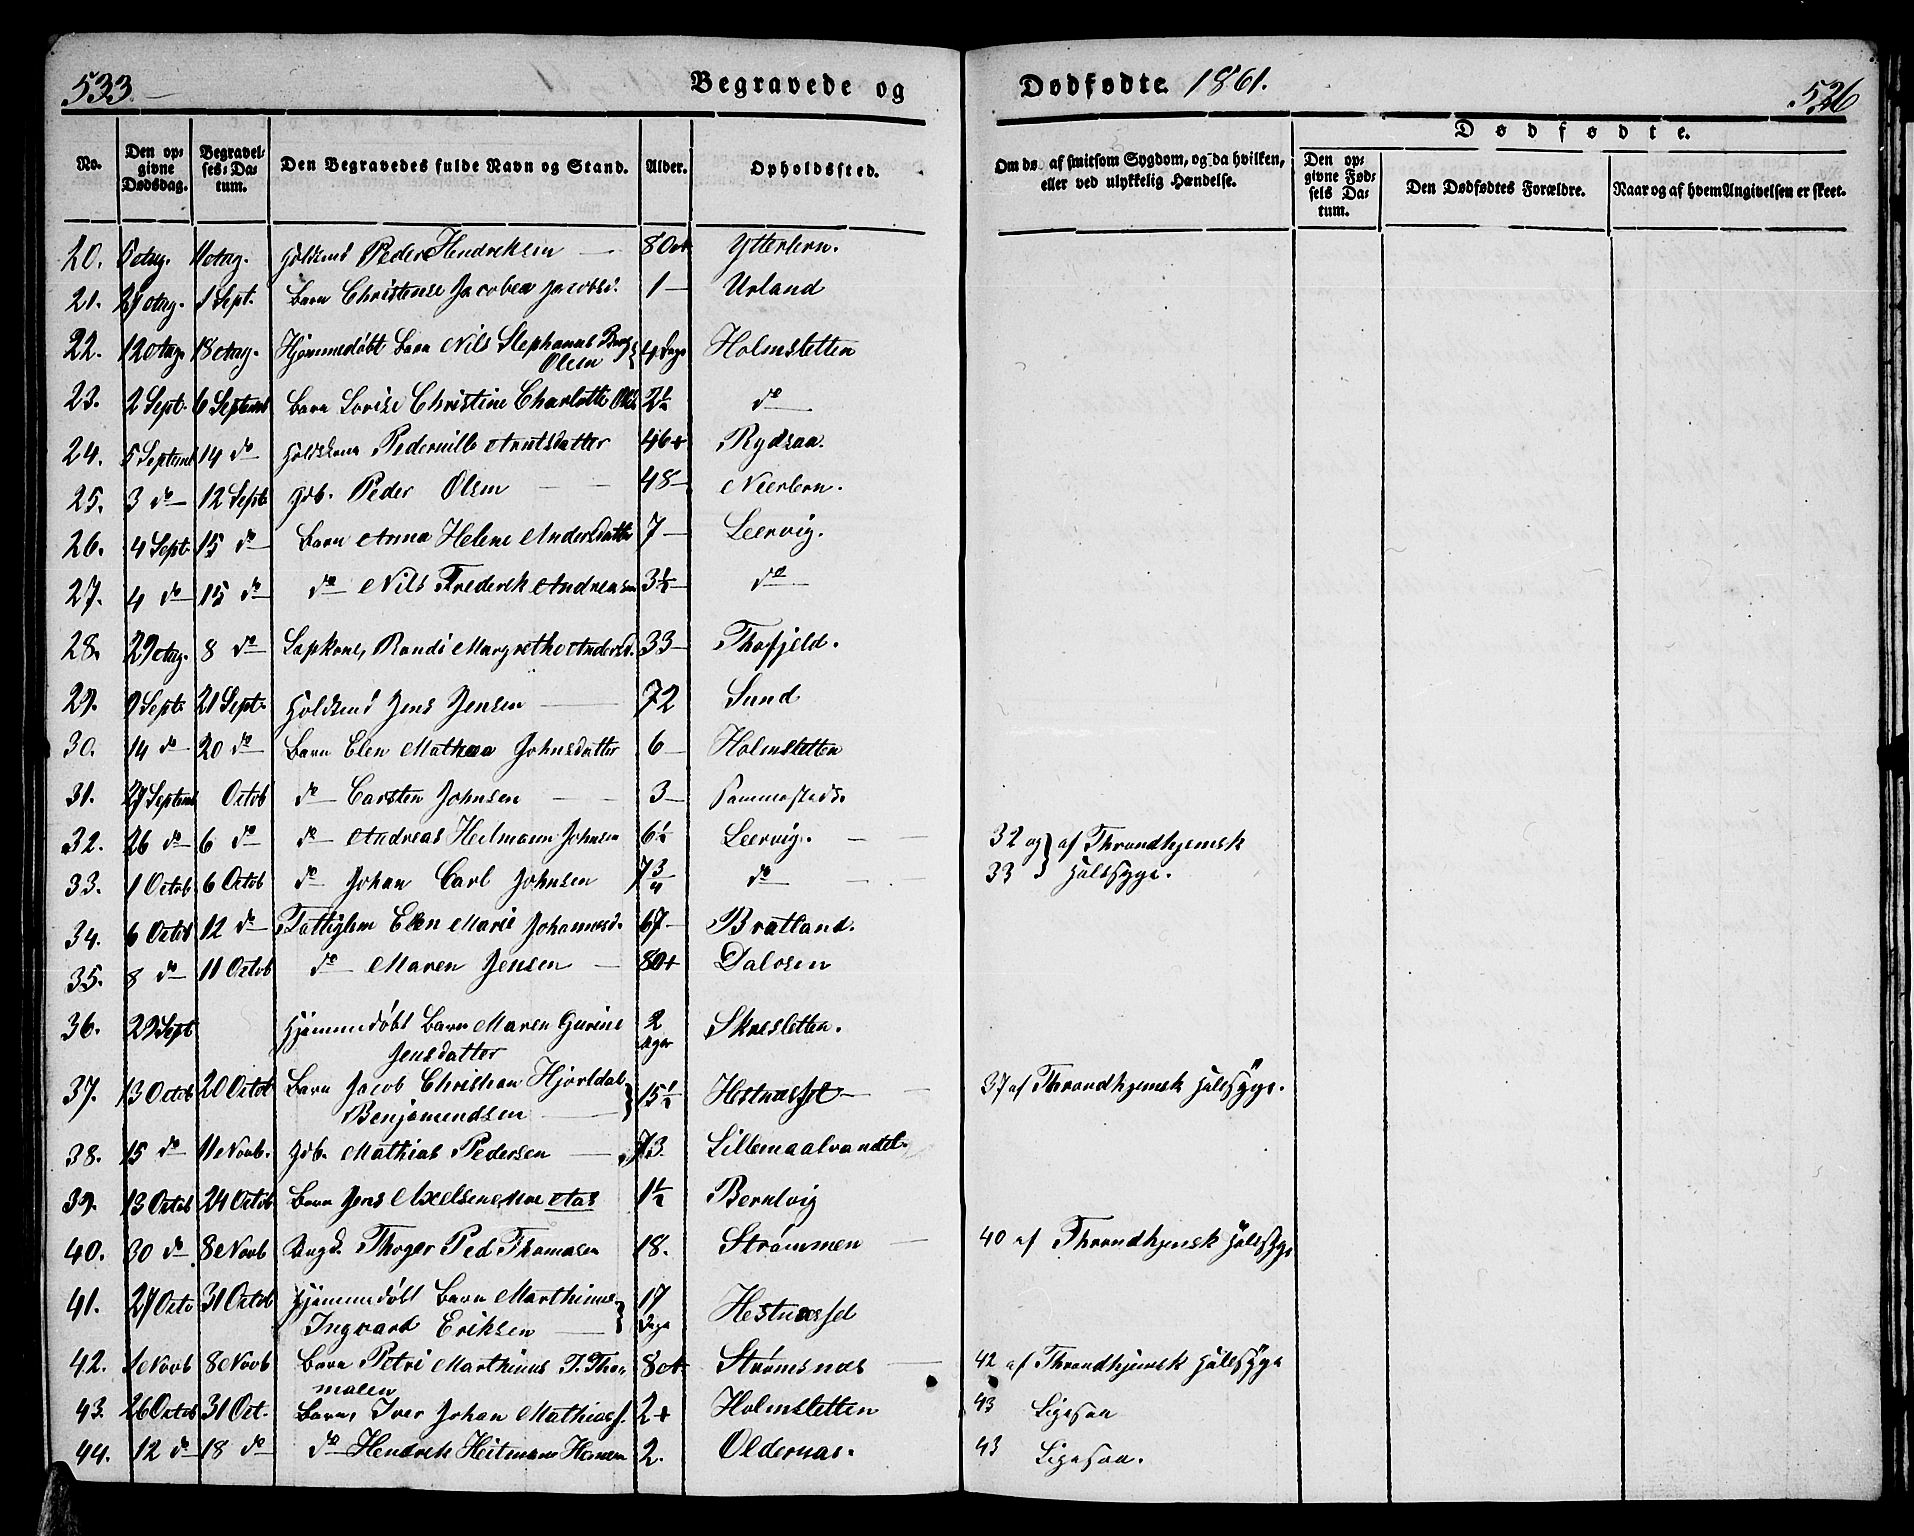 533.
Begravede og
Dødfødte. 1861.
526
No.
Den opgivne Dødsdag.
Begravelses-Datum.
Den Begravedes fulde Navn og Stand.
Alder.
Opholdssted.
Om dø af smitsom Sygdom, og da hvilken, eller ved ulykkelig Hændelse.
Dødfødte.
Den opgivne Fødsels Datum.
Den Dødfødtes Forældre.
Naar og af hvem Angivelsen er skeet.
20. Peder Hendriksen 80 Ytterlern.
21. 1 Sept. Barn Christense Jacobea Jacobsd. 1 Urland
22. Hjemmedøbt Barn Nils Stephanus
Olsen 4 Dage Holmsletten
23. 2 Sept. 6 Septemb Barn Lovise Christine Charlotte 2½ do
24. 5 Septemb 14 do Pedernille Arntsdatter 46 Rydsaa.
25. 3 do 12 Septb Gdb. Peder Olsen 48 Neerlern.
26. 4 Sept 15 do Barn Anna Helene Andersdatter 7 Leervig.
27. 4 do 15 do do Nils Frederik Andreasen 3½ do
28. 8 do Lapkone, Randi Margrethe Andersd. 33 Thofjeld.
29. 9 Septb 21 Septb Jens Jensen 72 Sund
30. 14 do 20 do Barn Elen Mathea Johnsdatter 6 Holmsletten
31. 27 Septemb Octob do Carsten Johnsen 3
32. 26 do 6 do do Andreas Heilmann Johnsen 6½ Leervig. 32 og } af Throndhjemsk
33. 1 Octob 6 Octob do Johan Carl Johnsen 7¾ do 33 } Halssyge.
34. 6 Octob 12 do Fattiglem Elen Marie Johannesd. 67 Bratland.
35. 8 do 11 Octob do Maren Jensen 80 Dalosen
36. 29 Sept Hjemmedøbt Barn Maren Gurine 2 Skresletten.
Jensdatter
37. 13 Octob 20 Octob Barn Jacob Christian Hjortdal 15½ Hestnæsset 37 af Throndhjemsk Halssyge.
Benjamindsen
38. 15 do Novb. Gdb. Mathias Pedersen 73 Lillemaalvandet.
39. 13 Octob 24 Octob Barn Jens Axelsen Moe Aas 1½ Berntvig
40. 30 do 8e Novb Ungk. Thoger Ped Thomasen 18. Strømmen 40 af Throndhjemsk Halssyge
41. 27 Octo 31 Octob Hjemmedøbt Barn Marthinus 17 Hestnæsset
Ingvart Eriksen Dage
42. 1e Novb 8e Novb Barn Petri Marthinus T. Tho- 8 Strømsnæs 42 af Throndhjemsk Halssyge
43. 26 Octob 31 Oct. Barn, Iver Johan Mathiass. 2 Holmsletten 43 Ligesaa
44. 12 do 18 do do Hendrik Heitmann Hansen 2. Oldernæs. 43 Ligesaa.